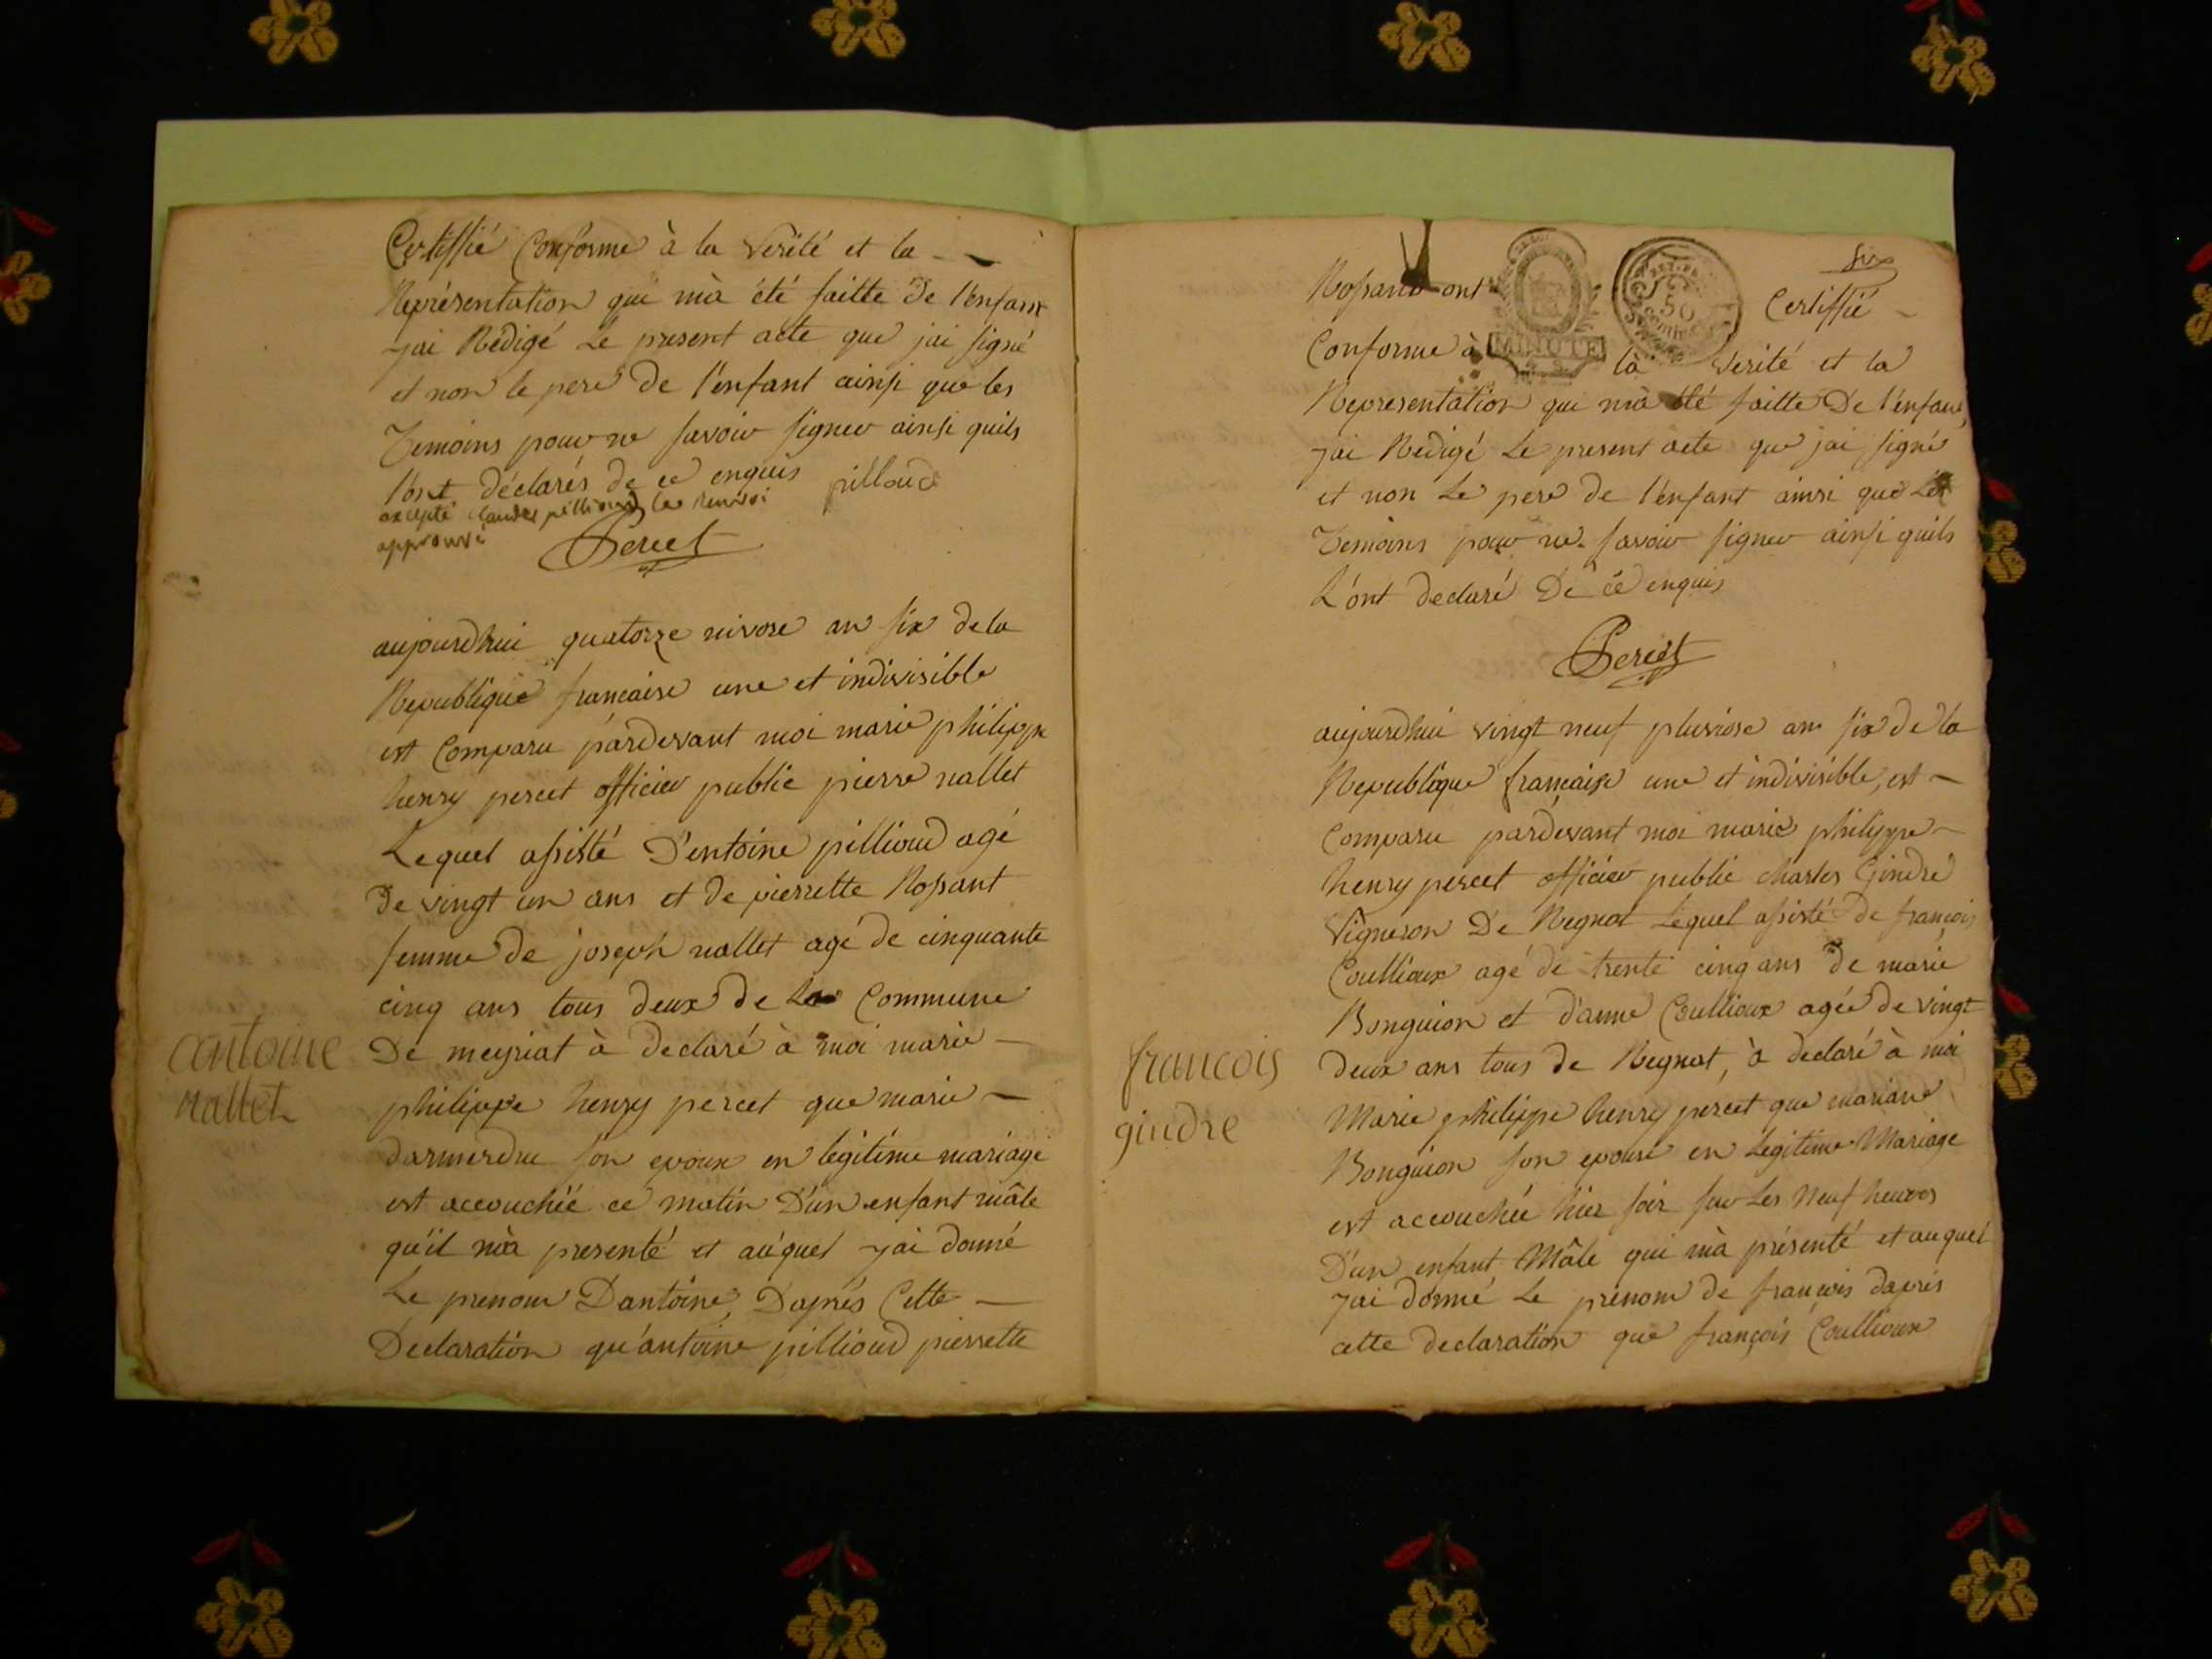 Certiffié Conforme à la verité et la
Représentation qui m'à été faitte de l'enfant
jai Rédigé le present acte que jai signé
et non le pere de l'enfant ainsi que les
Temoins pour ne savoir signer ainsi quils
l'ont déclarés de ce enquis pilloud
excepté claude pillioud le renvoi
approuvé
Percet
aujourdhui quatorze nivose an six de la
Republique francaise une et indivisible
est Comparu pardevant moi marie philippe
henry percet officier public pierre nallet
Lequel assisté D'entoine pillioud agé
De vingt un ans et de pierrette Rossant
femme de joseph nallet agé de cinquante
cinq ans tous deux de la Commune
De meyriat à declaré à moi marie
philippe henry percet que marie
darmerdru son epoux en légitime mariage
est accouchée ce matin D'un enfant mâle
qu'il m'à presenté et au'quel jai donné
Le prenom Dantoine, D'aprés Cette
Declaration qu'antoine pillioud pierrette
antoine
nallet
six
Rossand ont Certiffié
MINUTE
50
Conforme à là verité et la
Representation qui m'à été faitte De l'enfant,
jai Redigé Le present acte que jai signé
et non Le pere de l'enfant ainsi que Les
Temoins pour ne savoir signer ainsi quils
L'ont declaré De ce enquis
Percet
aujourdhui vingt neuf pluviose an six de la
Republique française une et indivisible, est
Comparu pardevant moi marie philippe
henry percet officier public charles Gindre
Vigneron De Regnat Lequel assisté de françois
Coullioux agé de trente cinq ans de marie
Bonguion et d'anne Coullioux agée de vingt
deux ans tous de Regnat, à declaré à moi
Marie philippe henry percet que mariane
Bonguion son epouse en Legitime Mariage
est accouchée hier soir sur Les Neuf heures
D'un enfant Mâle qui m'à présenté et auquel
jai donné Le prénom de francois daprés
cette declaration que françois Coullioux
francois
gindre